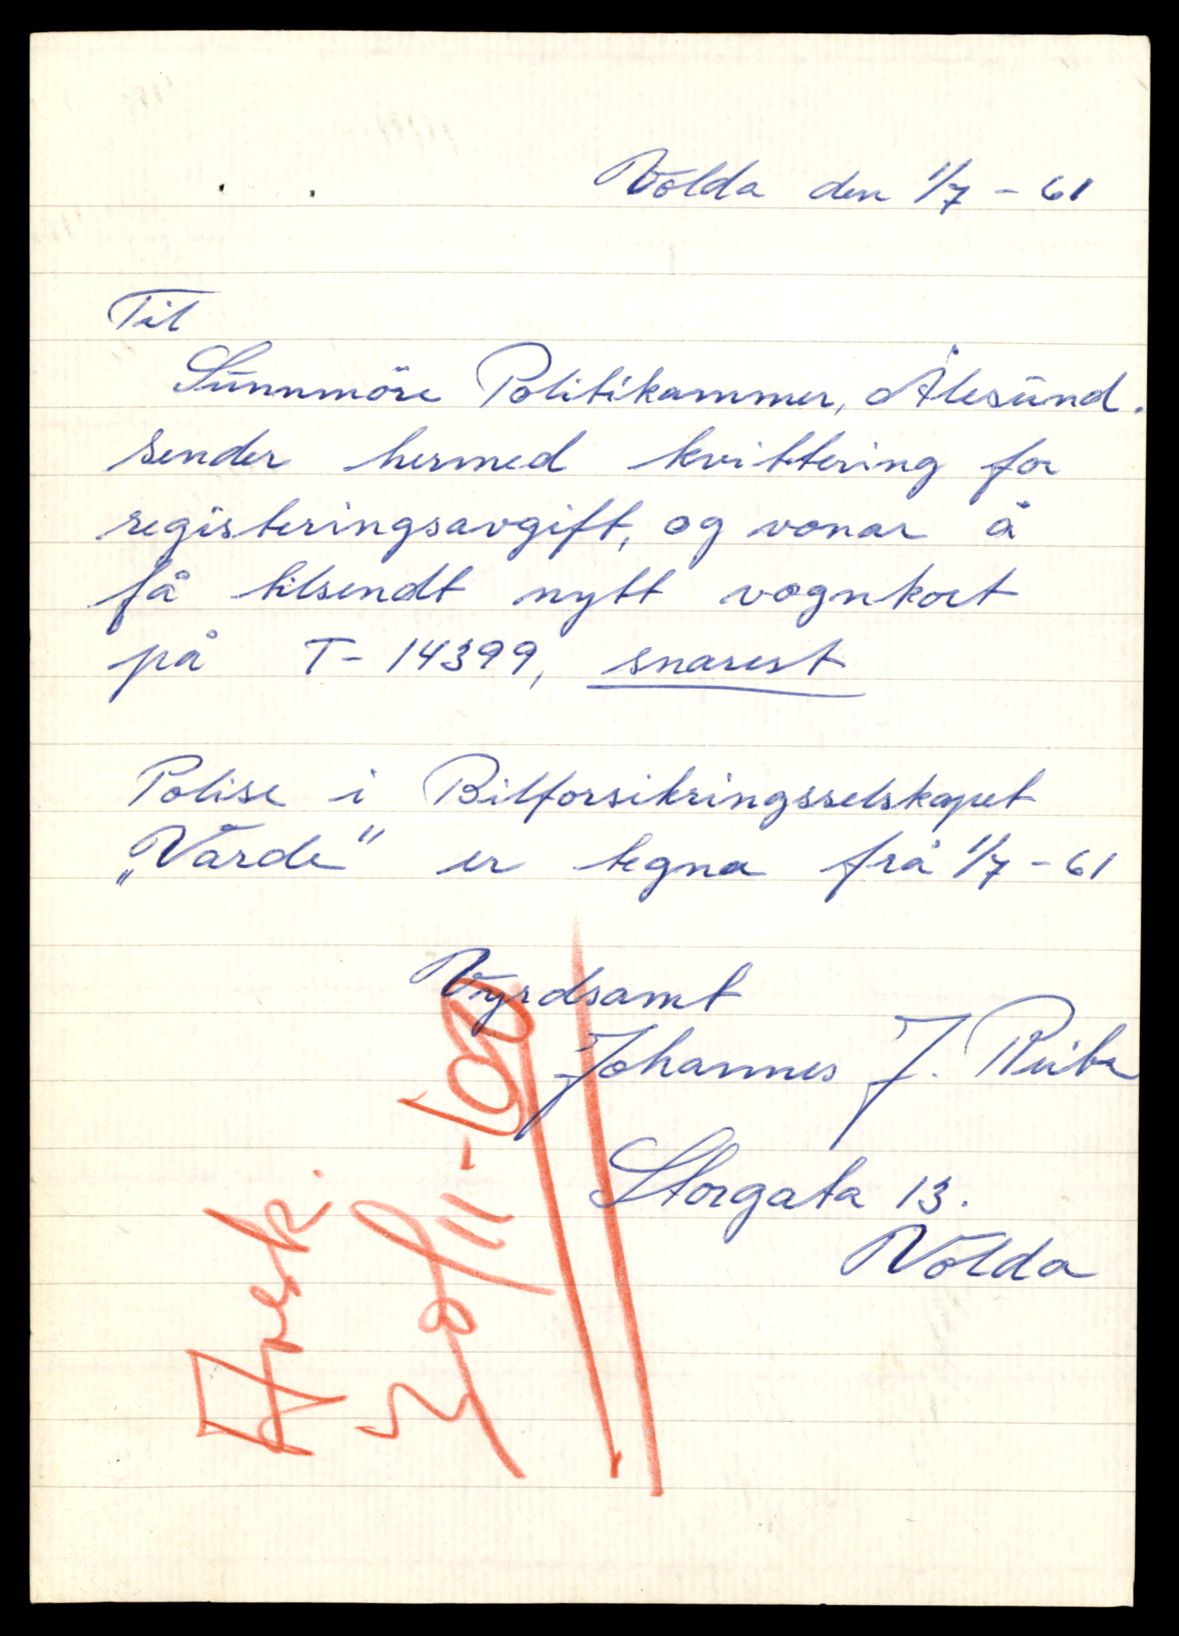 Volda den 1/7 - 61
Til
Sunnmöre Politikammer, Ålesund.
sender hermed kvittering for
registeringsavgift, og vonar å
få tilsendt nytt vognkort
på T- 14399, snarest
Polise i Bilforsikringsselskapet
„Varde" er tegna frå 1/7 - 61
Vyrdsamt
Johannes J.
Storgata 13.
Volda